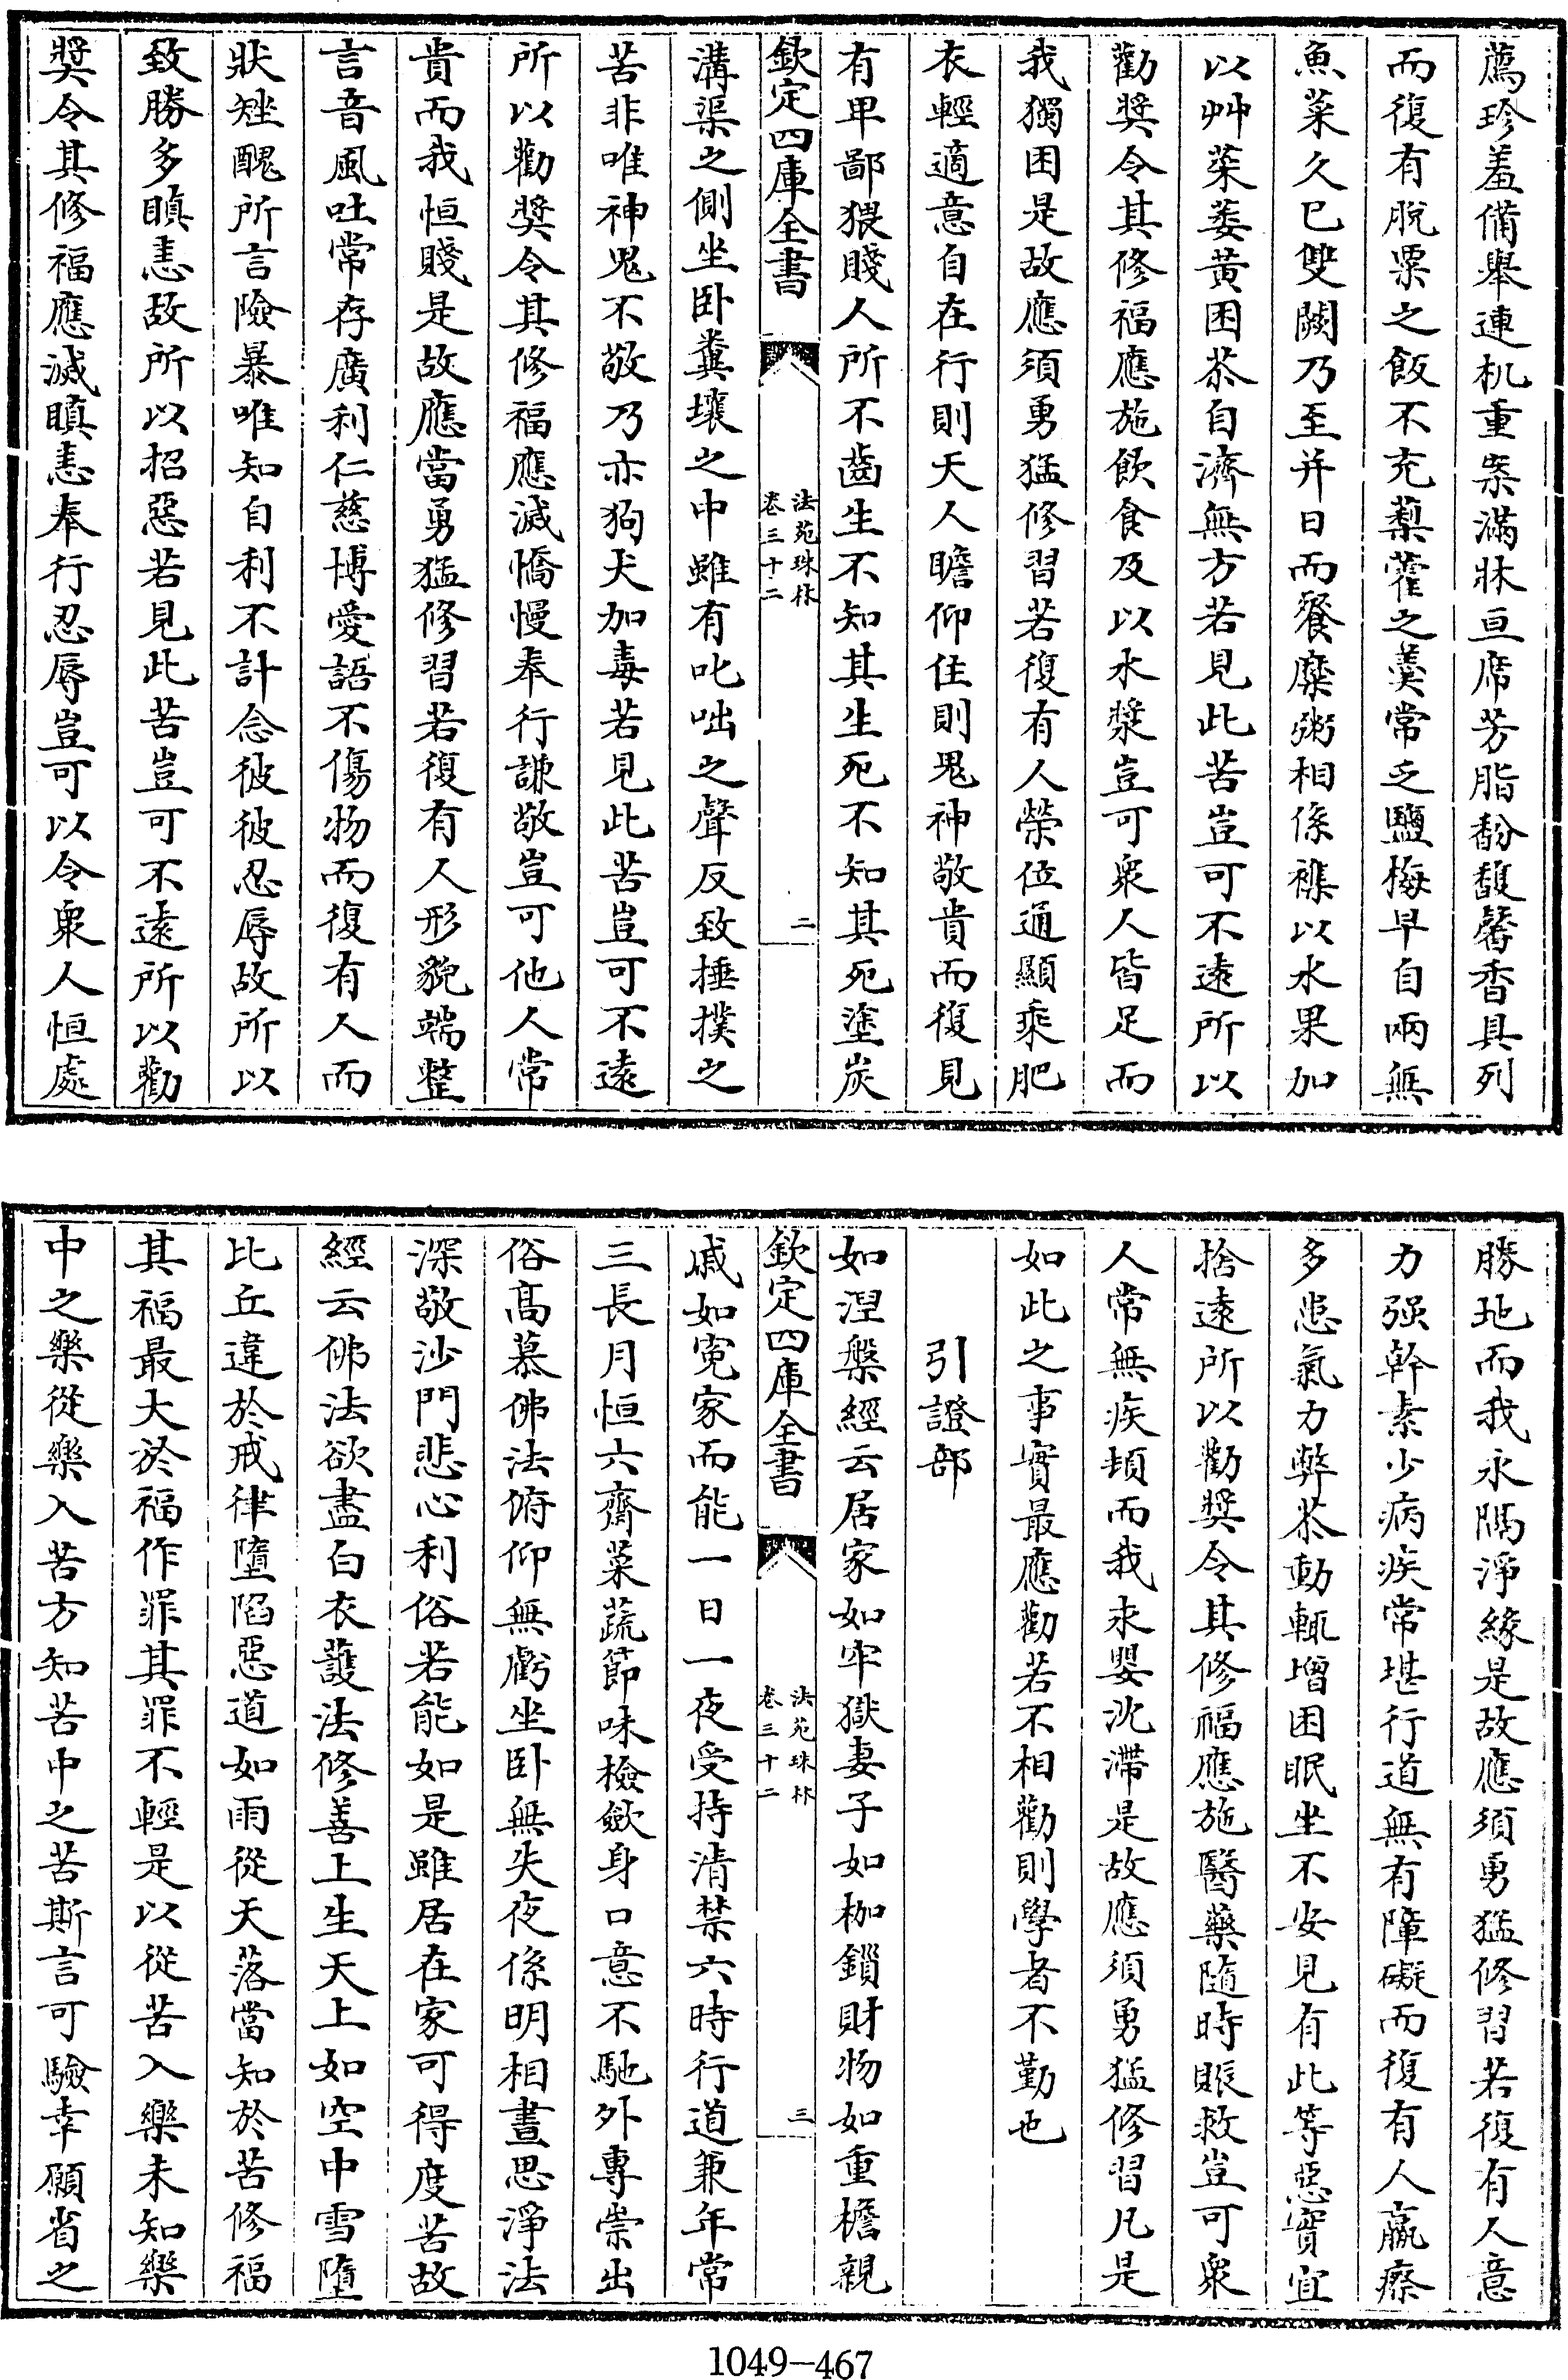 薦珍羞備舉連机重案滿牀亘席芳脂馚馥馨香具列
而復有脫粟之飯不充藜藿之羹常乏鹽梅早自兩無
魚菜久已雙闕乃至并日而餐糜粥相係襍以水果加
以艸菜萎黃困苶自濟無方若見此苦豈可不遠所以
勸奬令其修福應施飲食及以水漿豈可衆人皆足而
我獨困是故應須勇猛修習若復有人榮位通顯乘肥
衣輕適意自在行則天人瞻仰住則鬼神敬貴而復見
有卑鄙猥賤人所不齒生不知其生死不知其死塗炭
欽定四庫全書 法苑珠林 卷三十二 二
溝渠之側坐卧糞壤之中雖有叱咄之聲反致捶撲之
苦非唯神鬼不敬乃亦狗犬加毒若見此苦豈可不遠
所以勸奬令其修福應滅憍慢奉行謙敬豈可他人常
貴而我恒賤是故應當勇猛修習若復有人形貌端整
言音風吐常存廣利仁慈博愛語不傷物而復有人而
狀矬醜所言險暴唯知自利不計念彼彼忍辱故所以
致勝多瞋恚故所以招惡若見此苦豈可不遠所以勸
奬令其修福應滅瞋恚奉行忍辱豈可以令衆人恒處
勝地而我永隔淨緣是故應須勇猛修習若復有人意
力强幹素少病疾常堪行道無有障礙而復有人羸瘵
多患氣力弊苶動輒增困眠坐不安見有此等惡實宜
捨遠所以勸奬令其修福應施醫藥隨時賑救豈可衆
人常無疾頓而我永嬰沈滯是故應須勇猛修習凡是
如此之事實最應勸若不相勸則學者不勤也
引證部
如涅槃經云居家如牢獄妻子如枷鎖財物如重檐親
欽定四庫全書 法苑珠林 卷三十二 三
戚如寃家而能一日一夜受持清禁六時行道兼年常
三長月恒六齋菜蔬節味檢斂身口意不馳外專崇出
俗高慕佛法俯仰無虧坐卧無失夜係明相晝思淨法
深敬沙門悲心利俗若能如是雖居在家可得度苦故
經云佛法欲盡白衣護法修善上生天上如空中雪墮
比丘違於戒律墮陷惡道如雨從天落當知於苦修福
其福最大於福作罪其罪不輕是以從苦入樂未知樂
中之樂從樂入苦方知苦中之苦斯言可驗幸願省之
1049-467